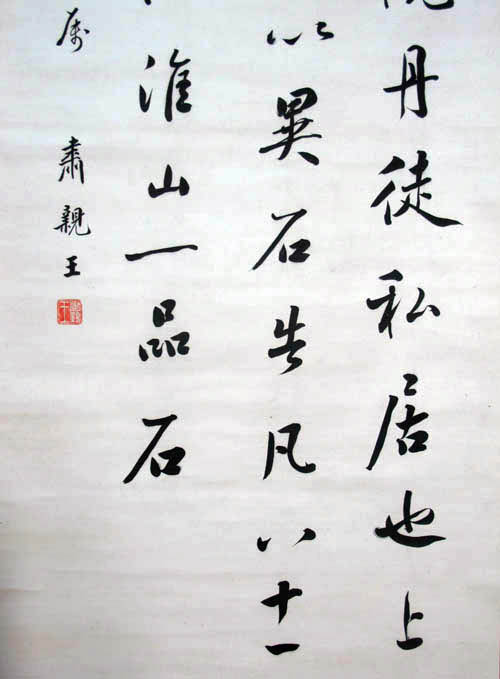 丹徒私居也上
以異石告凡八十一
淮山一品石
属
肅親王